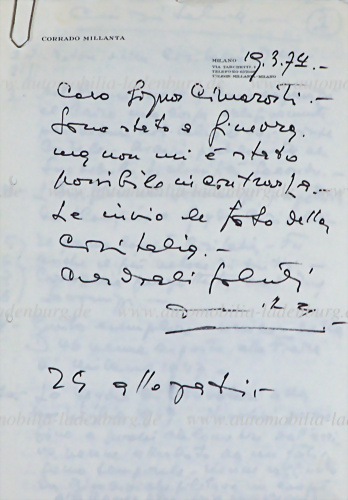 CORRADO MILLANTA
MILANO 19.3.74.-
VIA
Caro Signor Cimarosti.-
Sono stato a Ginevra,
ma non mi è stato
possibile incontrarla.-
Le invio le foto della
Cisitalia.-
Cordiali Saluti
25 allegati.-
www.automobilia-ladenburg.de
www.automobilia-ladenburg.de